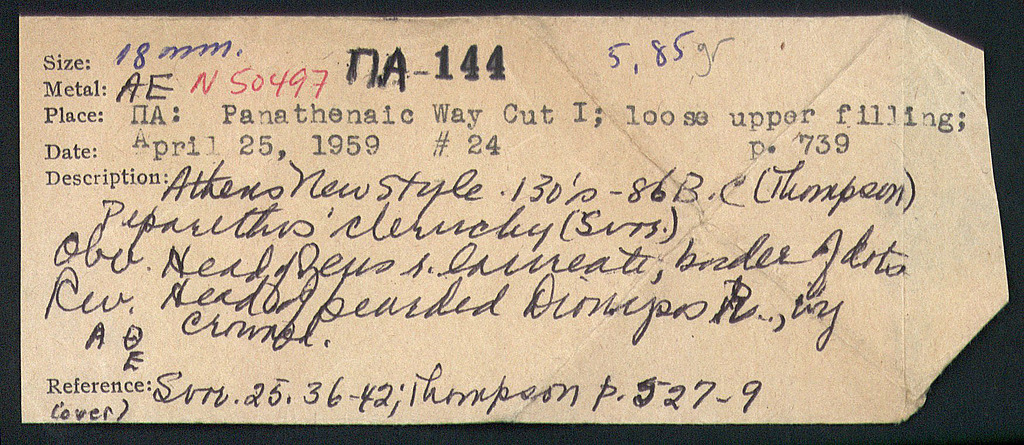 Size: 18 mm. ΠΑ-144 5,85 gr
Metal: AE N 50497
Place: ΠΑ: Panathenaic Way Cut I; loose upper filling;
Date: April 25, 1959 # 24 p. 739
Description: Athens New Style. 130's - 86 B.C (Thompson)
Peparethos' cleruchy (Svor.)
Obv. Head of Zeus r. laureate, border of dots
Rev. Head of bearded Dionysos R., ivy
crowned.
Α Θ
Ε
Reference: Svor. 25. 36-42; Thompson p. 527-9
(over)